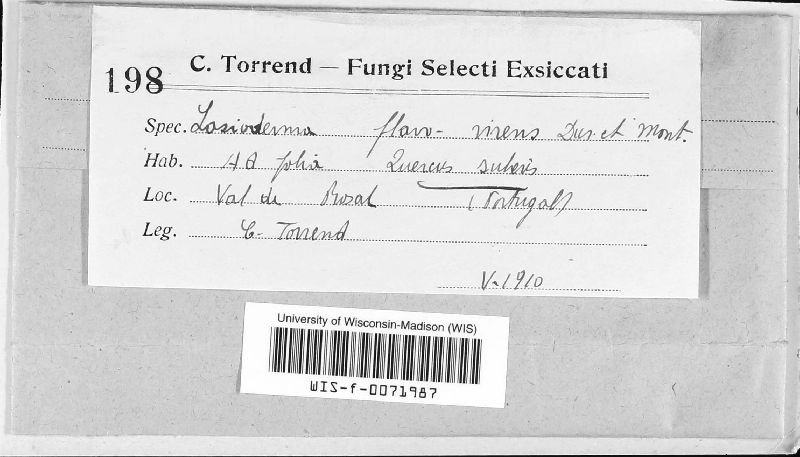 198
C. Torrend — Fungi Selecti Exsiccati
Spec. Lasioderma flavo-virens Dur. et Mont.
Hab. Ad folia Quercus suberis
Loc. Val de Rosal (Portugal)
Leg. C. Torrend
V-1910
University of Wisconsin-Madison (WIS)
WIS-f-0071987